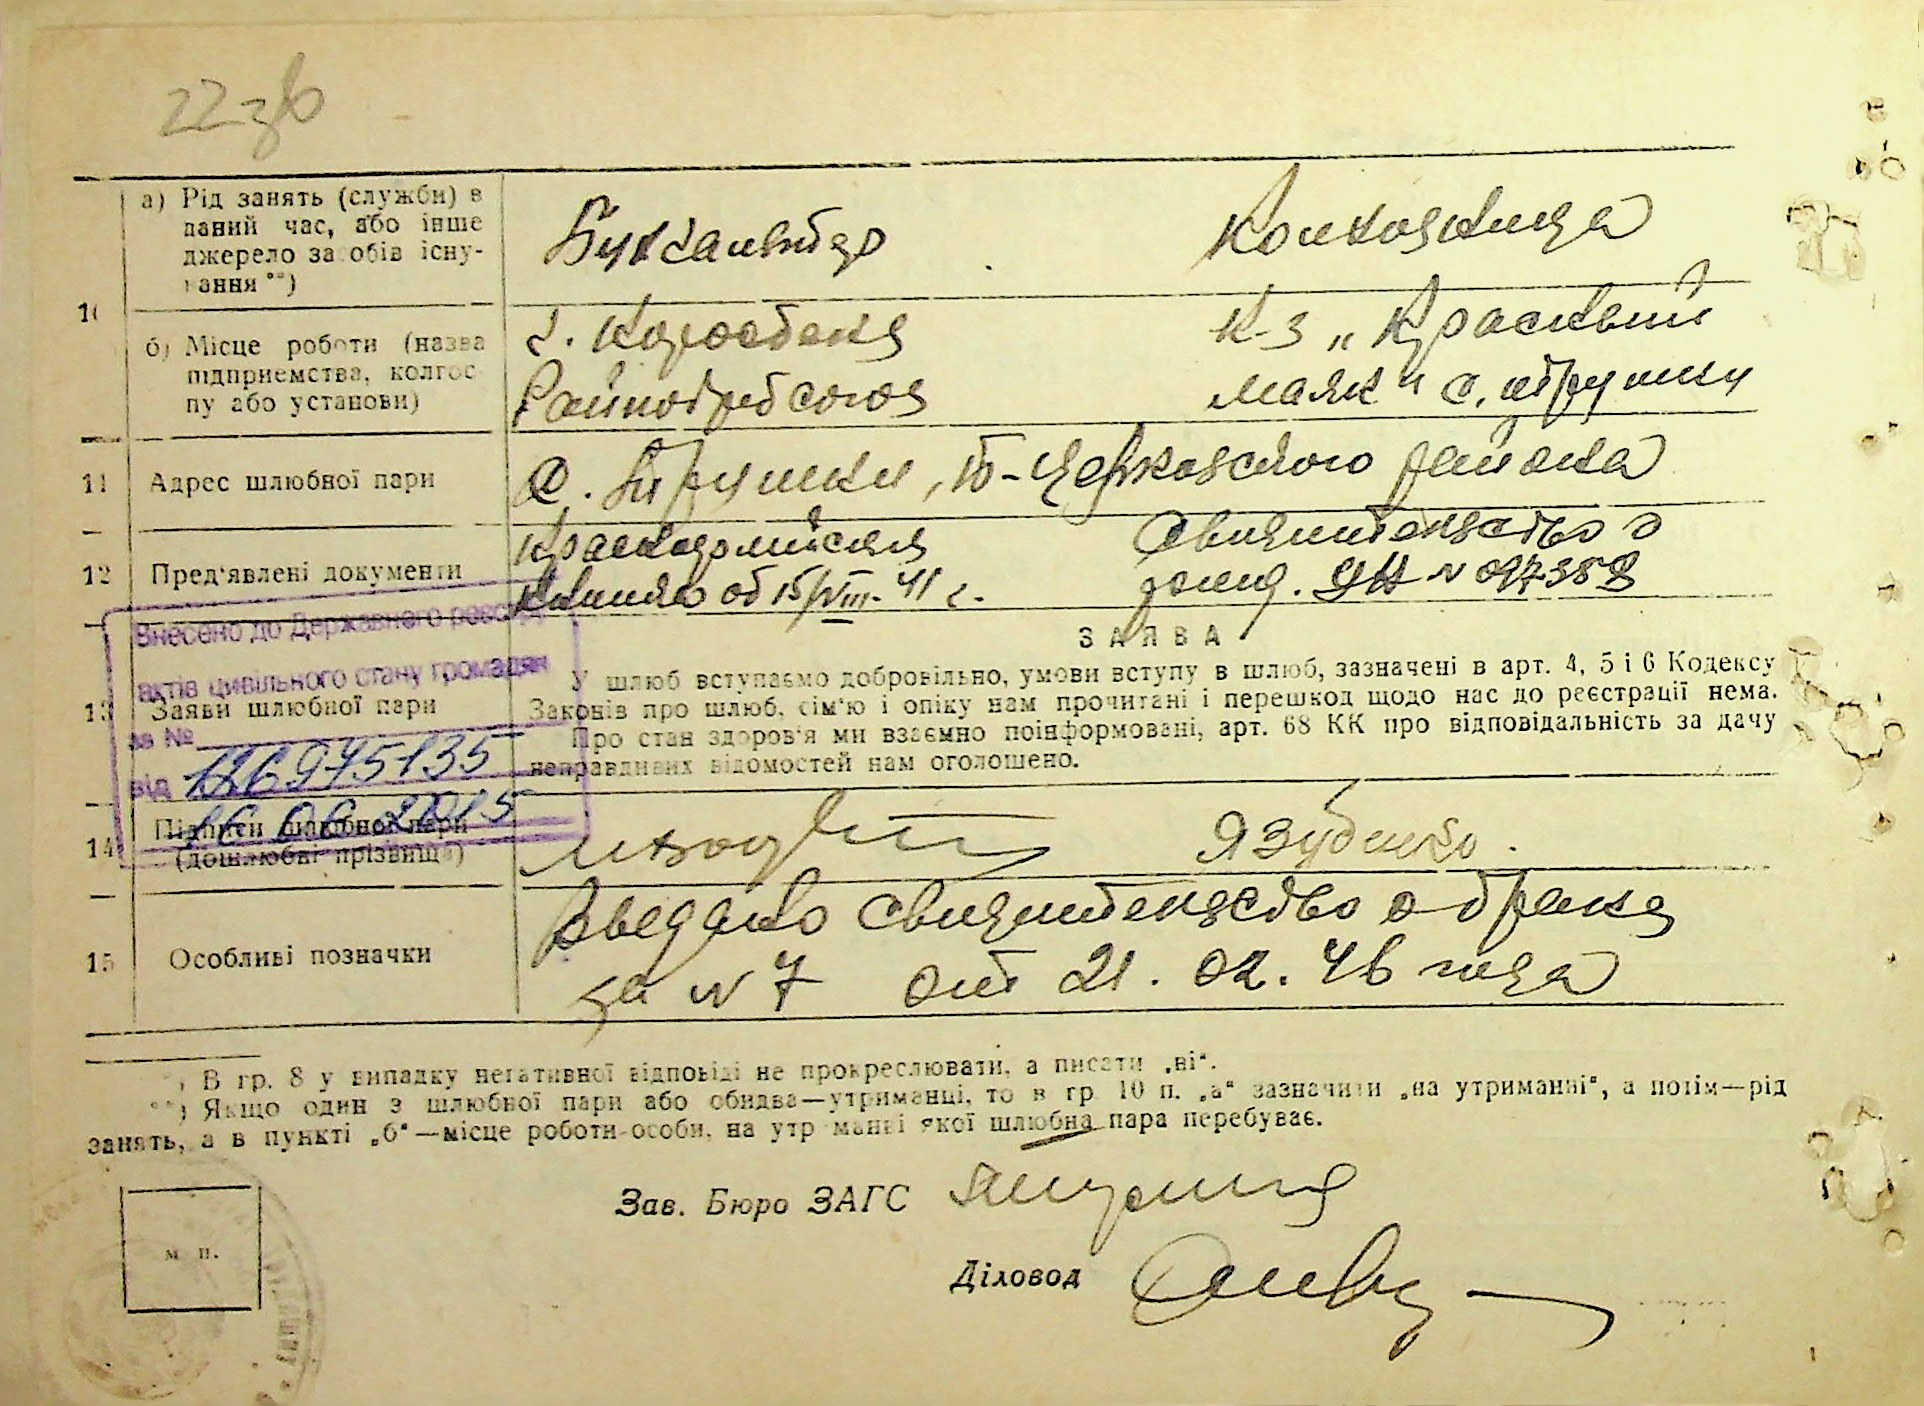 22зв
10
а) Рід занять (служби) в
даний час, або інше
джерело засобів існу-
вання **)
Бухгальтер
Колхозница
б) Місце роботи (назва
підприємства, колгос-
пу або установи)
г.
Райпотребсоюз
К-з „Красный
маяк" с. Трушки
11
Адрес шлюбної пари
с. Трушки, Б-Церковского района
12
Пред'явлені документи
Красноармейская
книжка об 15/VIII-41 г.
Свидетельство о
рожд. ЯН № 097389
Внесено до Державного реєстру
актів цивільного стану громадян
за №
від 126975135
16 06 2015
13
Заяви шлюбної пари
ЗАЯВА
У шлюб вступаємо добровільно, умови вступу в шлюб, зазначені в арт. 4, 5 і 6 Кодексу
Законів про шлюб, сім'ю і опіку нам прочитані і перешкод щодо нас до реєстрації нема.
Про стан здоров'я ми взаємно поінформовані, арт. 68 КК про відповідальність за дачу
неправдивих відомостей нам оголошено.
14
Підписи шлюбної пари
(дошлюбні прізвища)
ЯЗубенко.
15
Особливі позначки
Выдано свидетельство о браке
за № 7 от 21.02.46 года
*) В гр. 8 у випадку негативної відповіді не прокреслювати, а писати „ні".
**) Якщо один з шлюбної пари або обидва—утриманці, то в гр. 10 п. „а" зазначити „на утриманні", а потім—рід
занять, а в пункті „б"—місце роботи особи, на утриманні якої шлюбна пара перебуває.
м. п.
Зав. Бюро ЗАГС
Діловод